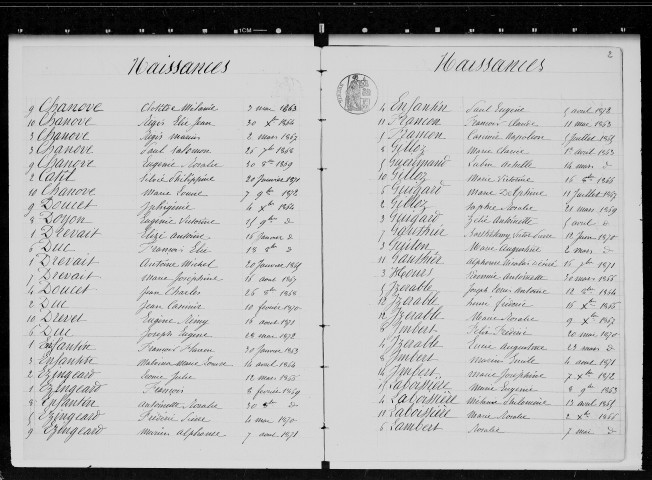 Naissances
9 Chanove Clotilde Mélanie 3 mai 1863
10 Chanove Régis Elie Jean 30 Xbre 1864
3 Chanove Régis Marius 2 mars 1867
3 Chanove Paul Salomon 25 7bre 1868
9 Chanove Eugénie Rosalie 30 8bre 1869
2 Cafel Silvie Philippine 20 Janvier 1871
10 Chanove Marie Louise 7 9bre 1872
9 Doucet Iphigénie 4 Xbre 1864
3 Doyon Eugénie Victorine 15 9bre d°
1 Drevait Elizé Antoine 16 Janvier d°
6 Duc François Elie 18 8bre d°
1 Drevait Antoine Michel 20 Janvier 1865
7 Drevait Marie Joséphine 15 août 1867
4 Doucet Jean Charles 26 8bre 1868
2 Duc Jean Casimir 10 février 1870
10 Drevet Eugène Rémy 16 août 1871
6 Duc Joseph Eugène 28 mai 1872
1 Enfantin François Florian 30 Janvier 1863
3 Enfantin Marie Louise 14 avril 1864
2 Ezingeard Julie 12 mars 1866
1 Ezingeard François 8 février 1869
8 Enfantin Antoinette Rosalie 30 8bre d°
5 Ezingeard Frédéric Pierre 4 mai 1870
9 Ezingeard Marius Alphonse 7 avril 1871
2
Naissances
4 Enfantin Paul Eugène 5 avril 1872
11 Francon François Claude 11 mai 1863
7 Francon Casimir Napoléon 1 Juillet 1865
8 Gilloz Marie Clarisse 1er août 1863
3 Guerimand Lubin Achille 14 mars d°
10 Gilloz Marie Victoine 16 8bre 1866
5 Guigard Marie Delphine 11 Juillet 1867
2 Gilloz Sophie Rosalie 21 mars 1869
3 Guigard Zélie Antoinette 5 avril d°
7 Gauthier Barthélemy Victor Pierre 12 Juin 1870
3 Guilon Marie Augustine 2 mars d°
11 Gauthier Alphonse 15 7bre 1871
3 Hours Antoinette 30 mars 1866
5 Izerable Joseph Antoine 12 8bre 1864
12 Izerable Henri Frédéric 16 Xbre 1865
12 Izerable Marie Rosalie 9 Xbre 1867
9 Imbert Félix Frédéric 20 mai 1870
4 Izerable Augustine 22 mars d°
8 Imbert Marius Emile 4 août 1871
14 Imbert Marie Joséphine 7 Xbre 1872
9 Laboissière Marie Eugénie 8 9bre 1863
4 Laboissière Philomène 13 avril 1865
11 Laboissière Marie Rosalie 2 Xbre 1866
6 Lambert Rosalie 7 mai d°